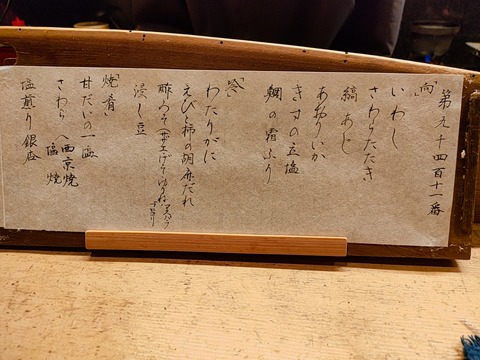 第九十四百十一番
「向」
いわし
さわらたたき
縞あじ
あおりいか
きすの立塩
鯛の霜ふり
「冷」
わたりがに
えびと柿の胡麻だれ
酢みそ
浸し豆
「焼肴」
甘だいの一塩
さわら 西京焼
塩焼
塩煎り銀杏